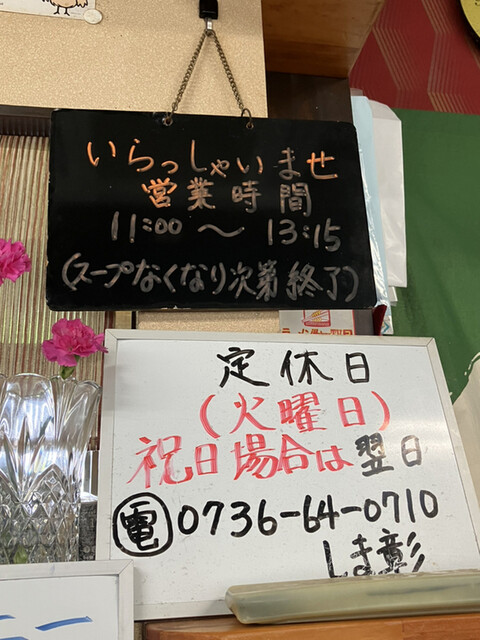 いらっしゃいませ
営業時間
11:00 〜 13:15
(スープなくなり次第終了)
定休日
(火曜日)
祝日場合は翌日
電 0736-64-0710
しま彰